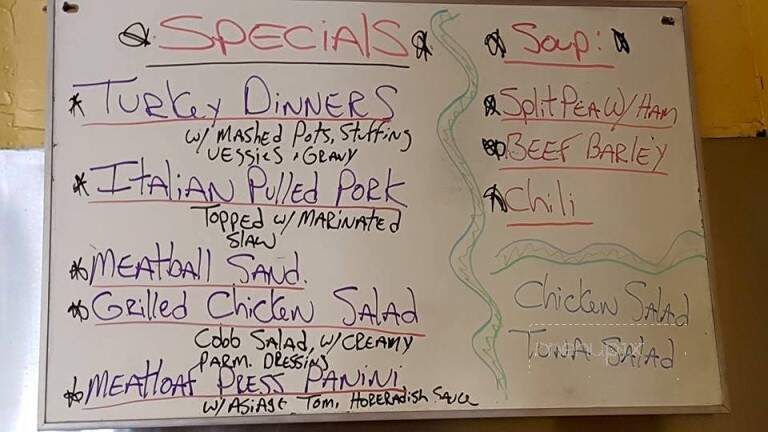 SPECIALS
TURKEY DINNERS
W/ MASHED POTS, STUFFING
VEGGIES, GRAVY
ITALIAN PULLED PORK
TOPPED W/ MARINATED
SLAW
MEATBALL SAND.
GRILLED CHICKEN SALAD
COBB SALAD, W/ CREAMY
PARM. DRESSING
MEATLOAF PRESS PANINI
W/ ASIAGE TOM, HORERADISH SAUCE
SOUP:
SPLIT PEA W/ HAM
BEEF BARLEY
CHILI
CHICKEN SALAD
TUNA SALAD